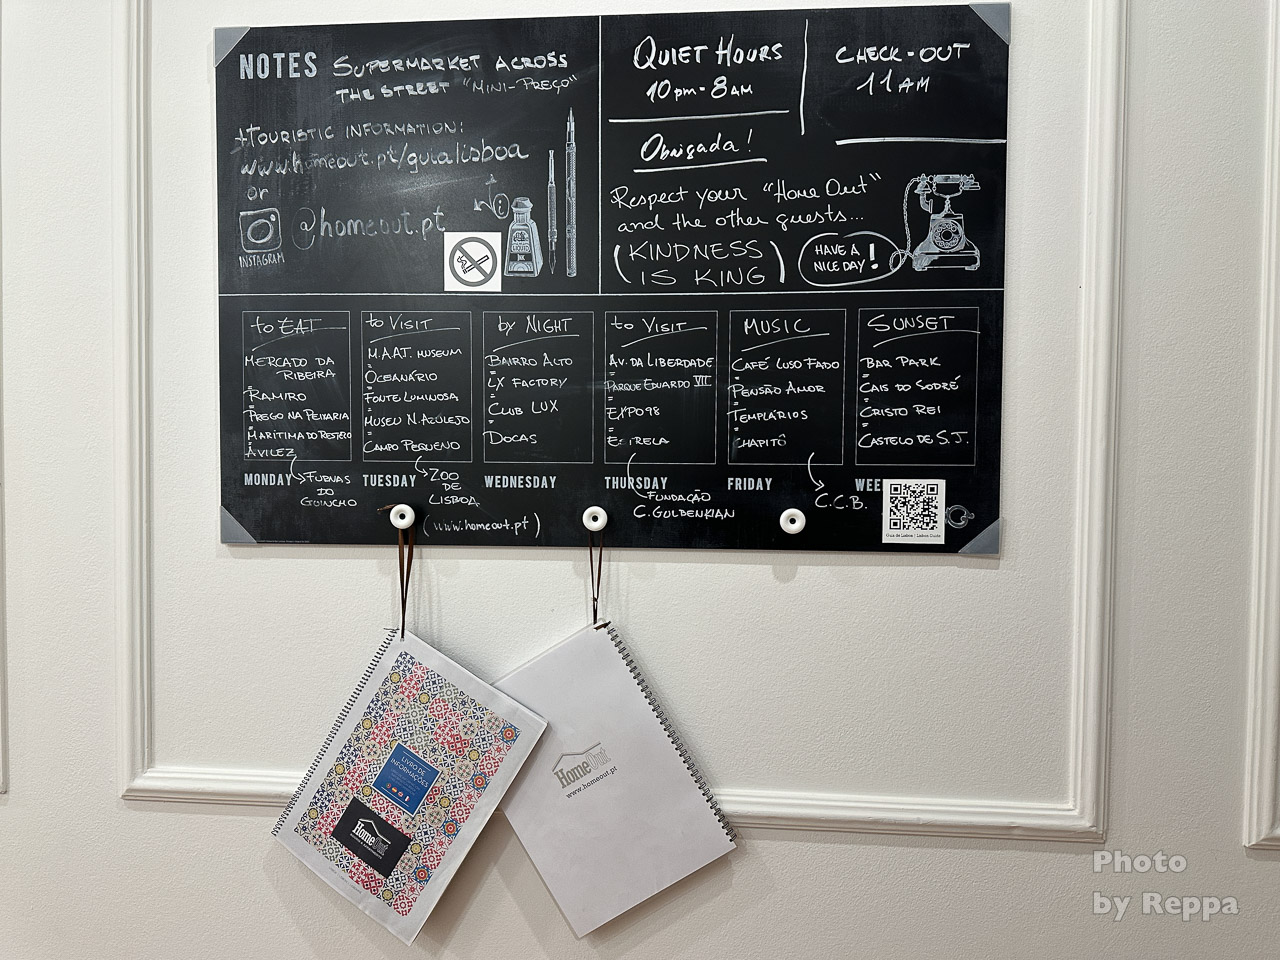 NOTES SUPERMARKET ACROSS
THE STREET "MINI-PREÇO"
+TOURISTIC INFORMATION:
www.homeout.pt/guialisboa
or
@homeout.pt
INSTAGRAM
INK
QUIET HOURS
10pm-8AM
CHECK-OUT
11AM
Obrigada!
Respect your "Home Out"
and the other guests...
(KINDNESS
IS KING)
HAVE A
NICE DAY!
to EAT
MERCADO DA
RIBEIRA
=
RAMIRO
=
PREGO NA PEIXARIA
=
MARÍTIMA DO RESTELO
=
AVILEZ
MONDAY
FURNAS
DO
GUINCHO
to VISIT
M.A.A.T. MUSEUM
=
OCEANÁRIO
=
FONTE LUMINOSA
=
MUSEU N. AZULEJO
=
CAMPO PEQUENO
TUESDAY
ZOO
DE
LISBOA
by NIGHT
BAIRRO ALTO
=
LX FACTORY
=
CLUB LUX
=
DOCAS
WEDNESDAY
to VISIT
AV. DA LIBERDADE
=
PARQUE EDUARDO VII
=
EXPO98
=
ESTRELA
THURSDAY
FUNDAÇÃO
C. GULDENKIAN
MUSIC
CAFÉ LUSO FADO
=
PENSÃO AMOR
=
TEMPLÁRIOS
=
CHAPITÔ
FRIDAY
C.C.B.
SUNSET
BAR PARK
=
CAIS DO SODRÉ
=
CRISTO REI
=
CASTELO DE S.J.
WEE
Guia de Lisboa | Lisbon Guide
(www.homeout.pt)
LIVRO DE
INFORMAÇÕES
HomeOut
HomeOut
www.homeout.pt
Photo
by Reppa